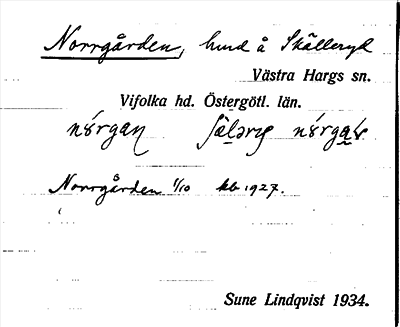 Norrgården, hmd å Skälleryd
Västra Hargs sn.
Vifolka hd. Östergötl. län.
Norrgården 1/10 kb 1927.
Sune Lindqvist 1934.